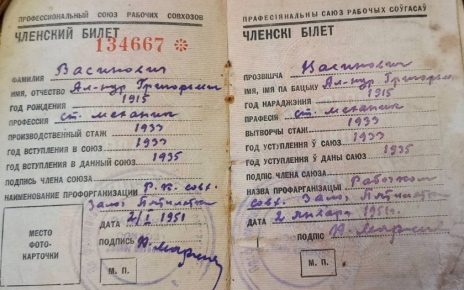 ПРОФЕССИОНАЛЬНЫЙ СОЮЗ РАБОЧИХ СОВХОЗОВ
ЧЛЕНСКИЙ БИЛЕТ
134667 *
ФАМИЛИЯ Васинович
ИМЯ, ОТЧЕСТВО
ГОД РОЖДЕНИЯ 1915
ПРОФЕССИЯ ст. механик
ПРОИЗВОДСТВЕННЫЙ СТАЖ 1933
ГОД ВСТУПЛЕНИЯ В СОЮЗ 1933
ГОД ВСТУПЛЕНИЯ В ДАННЫЙ СОЮЗ 1935
ПОДПИСЬ ЧЛЕНА СОЮЗА
НАИМЕНОВАНИЕ ПРОФОРГАНИЗАЦИИ Р.К. совх.
ДАТА 2/I 1951
ПОДПИСЬ
МЕСТО
ФОТО-
КАРТОЧКИ
М. П.
ПРАФЕСІЯНАЛЬНЫ САЮЗ РАБОЧЫХ СОЎГАСАЎ
ЧЛЕНСКІ БІЛЕТ
ПРОЗВІШЧА Васинович
ІМЯ, ІМЯ ПА БАЦЬКУ
ГОД НАРАДЖЭННЯ 1915
ПРАФЕСІЯ ст. механик
ВЫТВОРЧЫ СТАЖ 1933
ГОД УСТУПЛЕННЯ Ў САЮЗ 1933
ГОД УСТУПЛЕННЯ Ў ДАНЫ САЮЗ 1935
ПОДПІС ЧЛЕНА САЮЗА
НАЗВА ПРАФАРГАНІЗАЦЫІ Рабочком
совх.
ДАТА 2 января 1951г.
ПОДПІС
М. П.